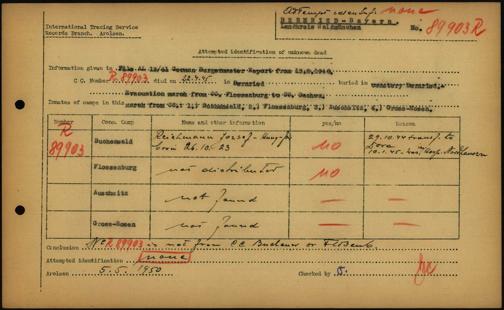 Attempt identif. none
International Tracing Service
Records Branch. Arolsen.
Landkreis Waldmünchen
No. 89903 R
Attempted identification of unknown dead
Information given in File AL 12/61 German Burgermaster Report from 13.8.1946,
C.C.Number R 89903 died on 22.4.45 in Bernried buried in cemetery Bernried,
Evacuation march from CC. Flossenburg to CC. Dachau,
Inmates of camps in this march from CC.: 1,) Buchenwald, 2,) Flossenburg, 3,) Auschwitz, 4,) Gross-Rosen.
Number Conc. Camp Name and other information yes/no Remarks
R 89903
Buchenwald Reichmann Jozsef - Hung. born 26.10.23 no 29.10.44 transf. to Dora 10.1.45
Flossenburg not distributed no
Auschwitz not found — —
Gross-Rosen not found — —
Conclusion No R 89903 is not from C.C. Buchenw or Flossenb.
Attempted identification: none
Arolsen 5.5. 1950 Checked by